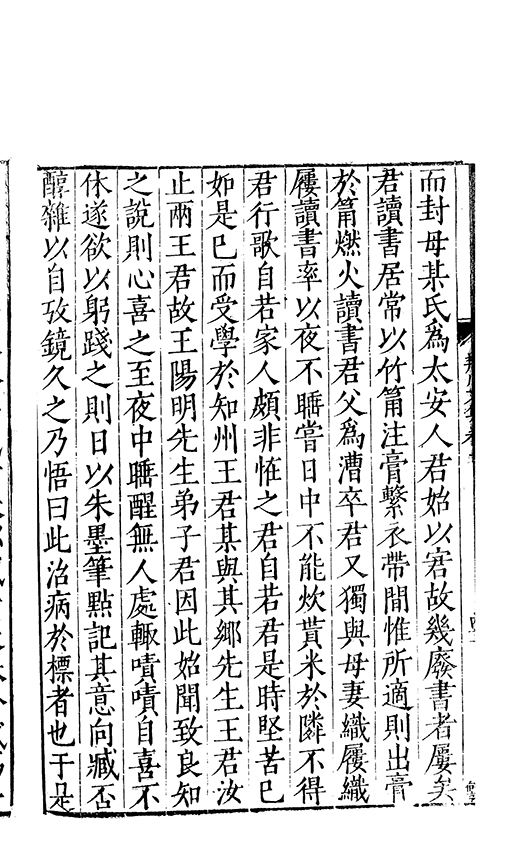 而封母某氏為太安人君始以窘故幾廢書者屢矣
君讀書居常以竹筩注膏繫衣帶間惟所適則出膏
於筩燃火讀書君父為漕卒君又獨與母妻織屨織
屨讀書率以夜不睡嘗日中不能炊貰米於隣不得
君行歌自若家人頗非恠之君自若君是時堅苦已
如是已而受學於知州王君某與其鄉先生王君汝
止兩王君故王陽明先生弟子君因此始聞致良知
之說則心喜之至夜中睡醒無人處輙嘖嘖自喜不
休遂欲以躬踐之則日以朱墨筆點記其意向臧否
醇雜以自攷鏡久之乃悟曰此治病於標者也于是